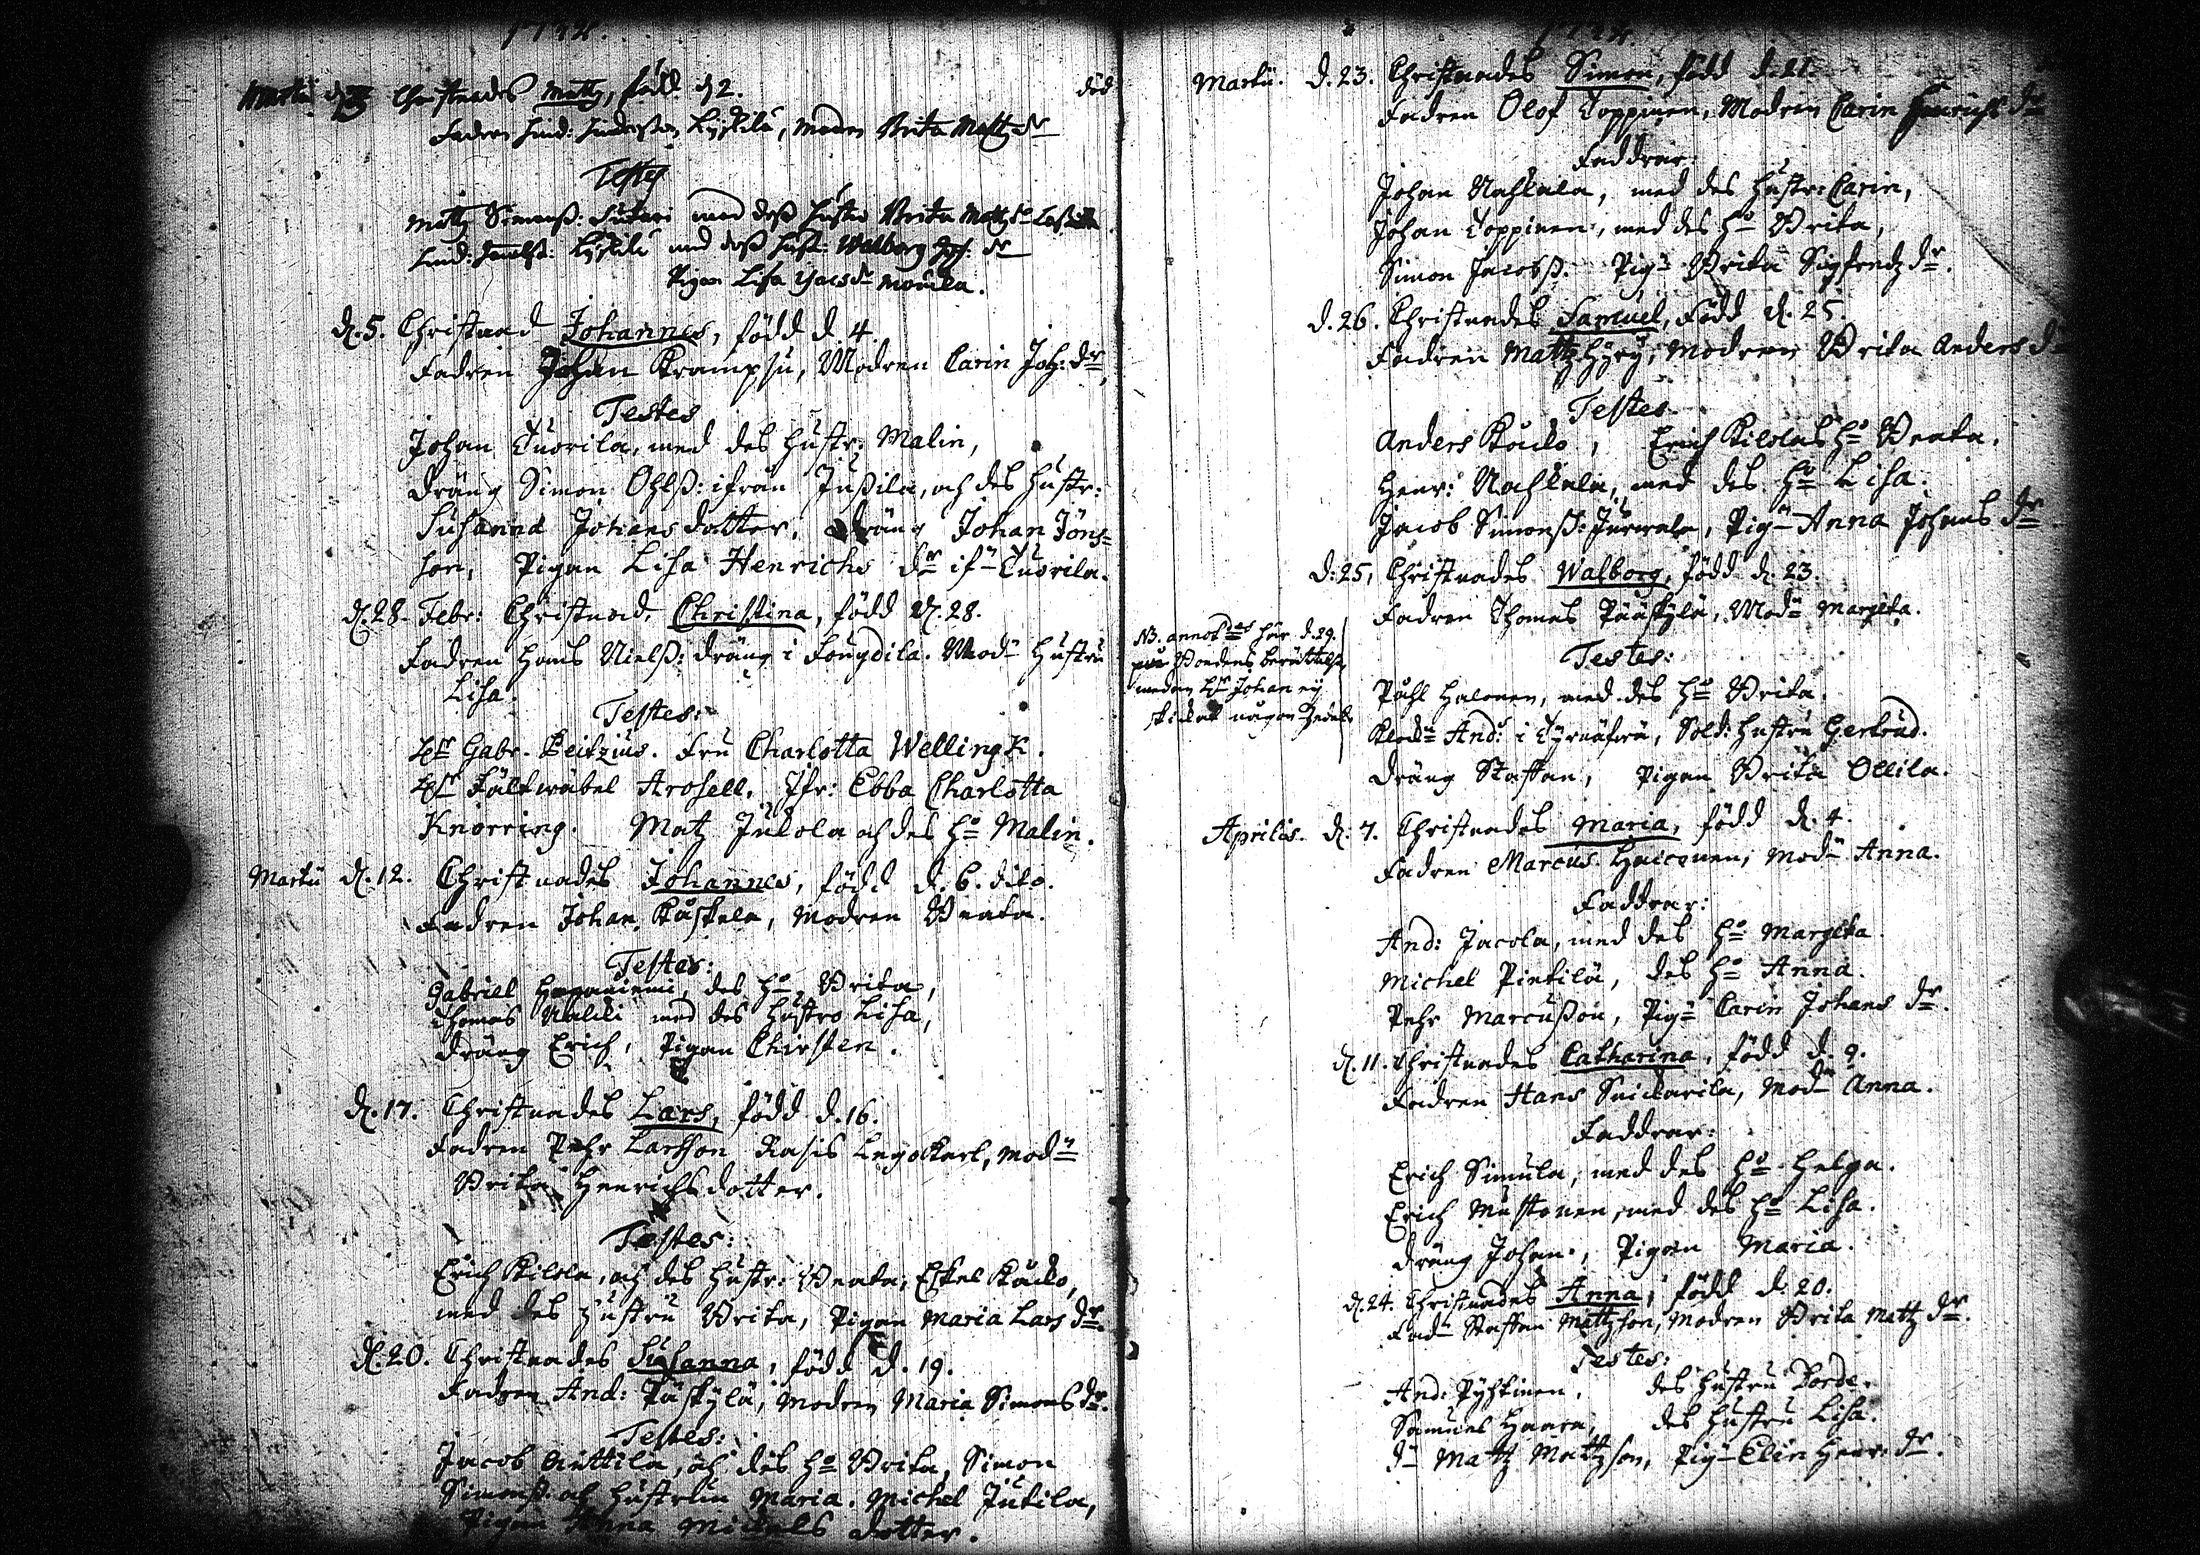 Martii Christnades Mattz, född d 2. död
Fadren Hind: Hindersson Kyskilä, Modren Brita Mattz dr
Testes
Mattz Simonß: med deß hustro Brita Mattz dr
Hind: Kyskilä med deß hust: Walborg dr
Pigan Lisa Mouila.
d. 5. Christnad Johannes, född d. 4.
Fadren Johan Krampsu, Modren Carin Joh: dr,
Testes
Johan Tuorila, med des hustr: Malin,
dräng Simon Ohlß: ifrån Jußila, och des hustr:
Susanna Johansdotter, dräng Johan Jöns=
son, Pigan Lisa Henrichs dr if:n Tuorila.
d. 28. Febr: Christnad, Christina, född d. 28.
Fadren Hans Nielß: dräng i Fougdila. Mod:n hustru
Lisa.
Testes:
Hr Gabr. Peitzius. Fru Charlotta Wellingk.
Hr Fältwäbel Arosell, Jfr: Ebba Charlotta
Knorring. Matz Jukola och des ho Malin.
Martii d. 12. Christnades Johannes, född d. 6. dito.
Fadren Johan Kåskela, Modren Beata.
Testes:
Gabriel des ho Brita,
Thomas Nalli med des hustro Lisa,
dräng Erich, Pigan Chirsten.
d. 17. Christnades Lars, född d. 16.
Fadren Pehr Larsson Rasis Legokarl, mod:n
Brita Henrichsdotter.
Testes:
Erich Kilola, och des hustr: Beata, Eskel Kaucko,
med des hustru Brita, Pigan Maria Lars dr.
d. 20. Christnades Susanna, född d. 19.
Fadren And: Päskylä, Modren Maria Simons dr.
Testes:
Jacob Anttila, och des ho Brita, Simon
Simonß: och hustrun Maria. Michel Jutila,
Pigan Anna Michels dotter.
Martii. d. 23. Christnades Simon, född d. 21.
Fadren Olof Toppinen, Modren Carin Henrichs dr
Faddrar:
Johan Nahkala, med des hustr: Carin,
Johan Toppinen, med des ho Brita,
Simon Jacobß. Pig:n Brita Sigfredz dr.
d. 26. Christnades Samuel, född d. 25.
Fadren Mattz Hyry, Modren Brita Anders dr
Testes
Anders Kaucko, Erich Kilolas ho Beata.
Henr: Nahkala, med des ho Lisa.
Jacob Simonß: Jurwala, Pig:n Anna Johans dr.
d. 25, Christnades Walborg, född d. 23.
Fadren Thomas Pääskylä, Mod:n Margeta.
NB. här d. 29.
på Bondens berättelse
medan Hr Johan ey
skickat någon Zedel.
Testes:
Påhl Halonen, med des ho Brita,
And: i Tyrnäfwä, Sold: hustru Gertrud.
dräng Staffan, Pigan Brita Ollila.
Aprilis. d. 7. Christnades Maria, född d. 4.
Fadren Marcus Haiconen, Mod:n Anna.
Faddrar:
And: Jacola, med des ho Margeta.
Michel Pintilä, des ho Anna.
Pehr Marcußon, Pig:n Carin Johans dr.
d. 11. Christnades Catharina, född d. 9.
Fadren Hans Snickarila, Mod:n Anna.
Faddrar:
Erich Simula, med des ho Helga.
Erich Mustonen, med des ho Lisa.
dräng Johan, Pigan Maria.
d. 24. Christnades Anna, född d. 20.
Fad:n Staffan Mattzson, Modren Brita Mattz dr.
Testes:
And: Pyykinen, des hustruBorde.
Samuel Haara, des hustru Lisa.
d:n Mattz Mattzson, Pig:n Elin Henr: dr.